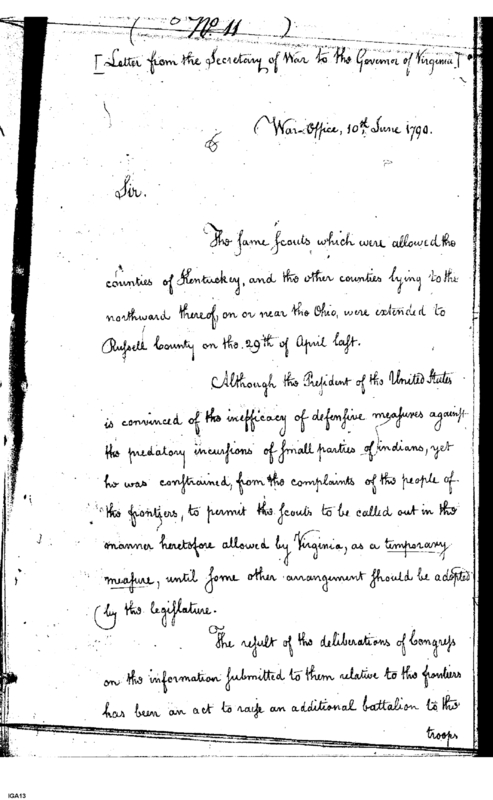 ( No 11 )
[Letter from the Secretary of War to the Governor of Virginia]
War-Office, 10th June 1790.
Sir.
The same Scouts which were allowed the
counties of Kentuckey, and the other counties lying to the
northward thereof, on or near the Ohio, were extended to
Russell County on the 29th of April last.
Although the President of the United States
is convinced of the inefficacy of defensive measures against
the predatory incursions of small parties of indians, yet
he was constrained, from the complaints of the people of
the frontiers, to permit the scouts to be called out in the
manner heretofore allowed by Virginia, as a temporary
measure, until some other arrangement should be adopted
by the legislature.
The result of the deliberations of Congress
on the information submitted to them relative to the frontiers
has been an act to raise an additional battalion to the
troops
IGA13